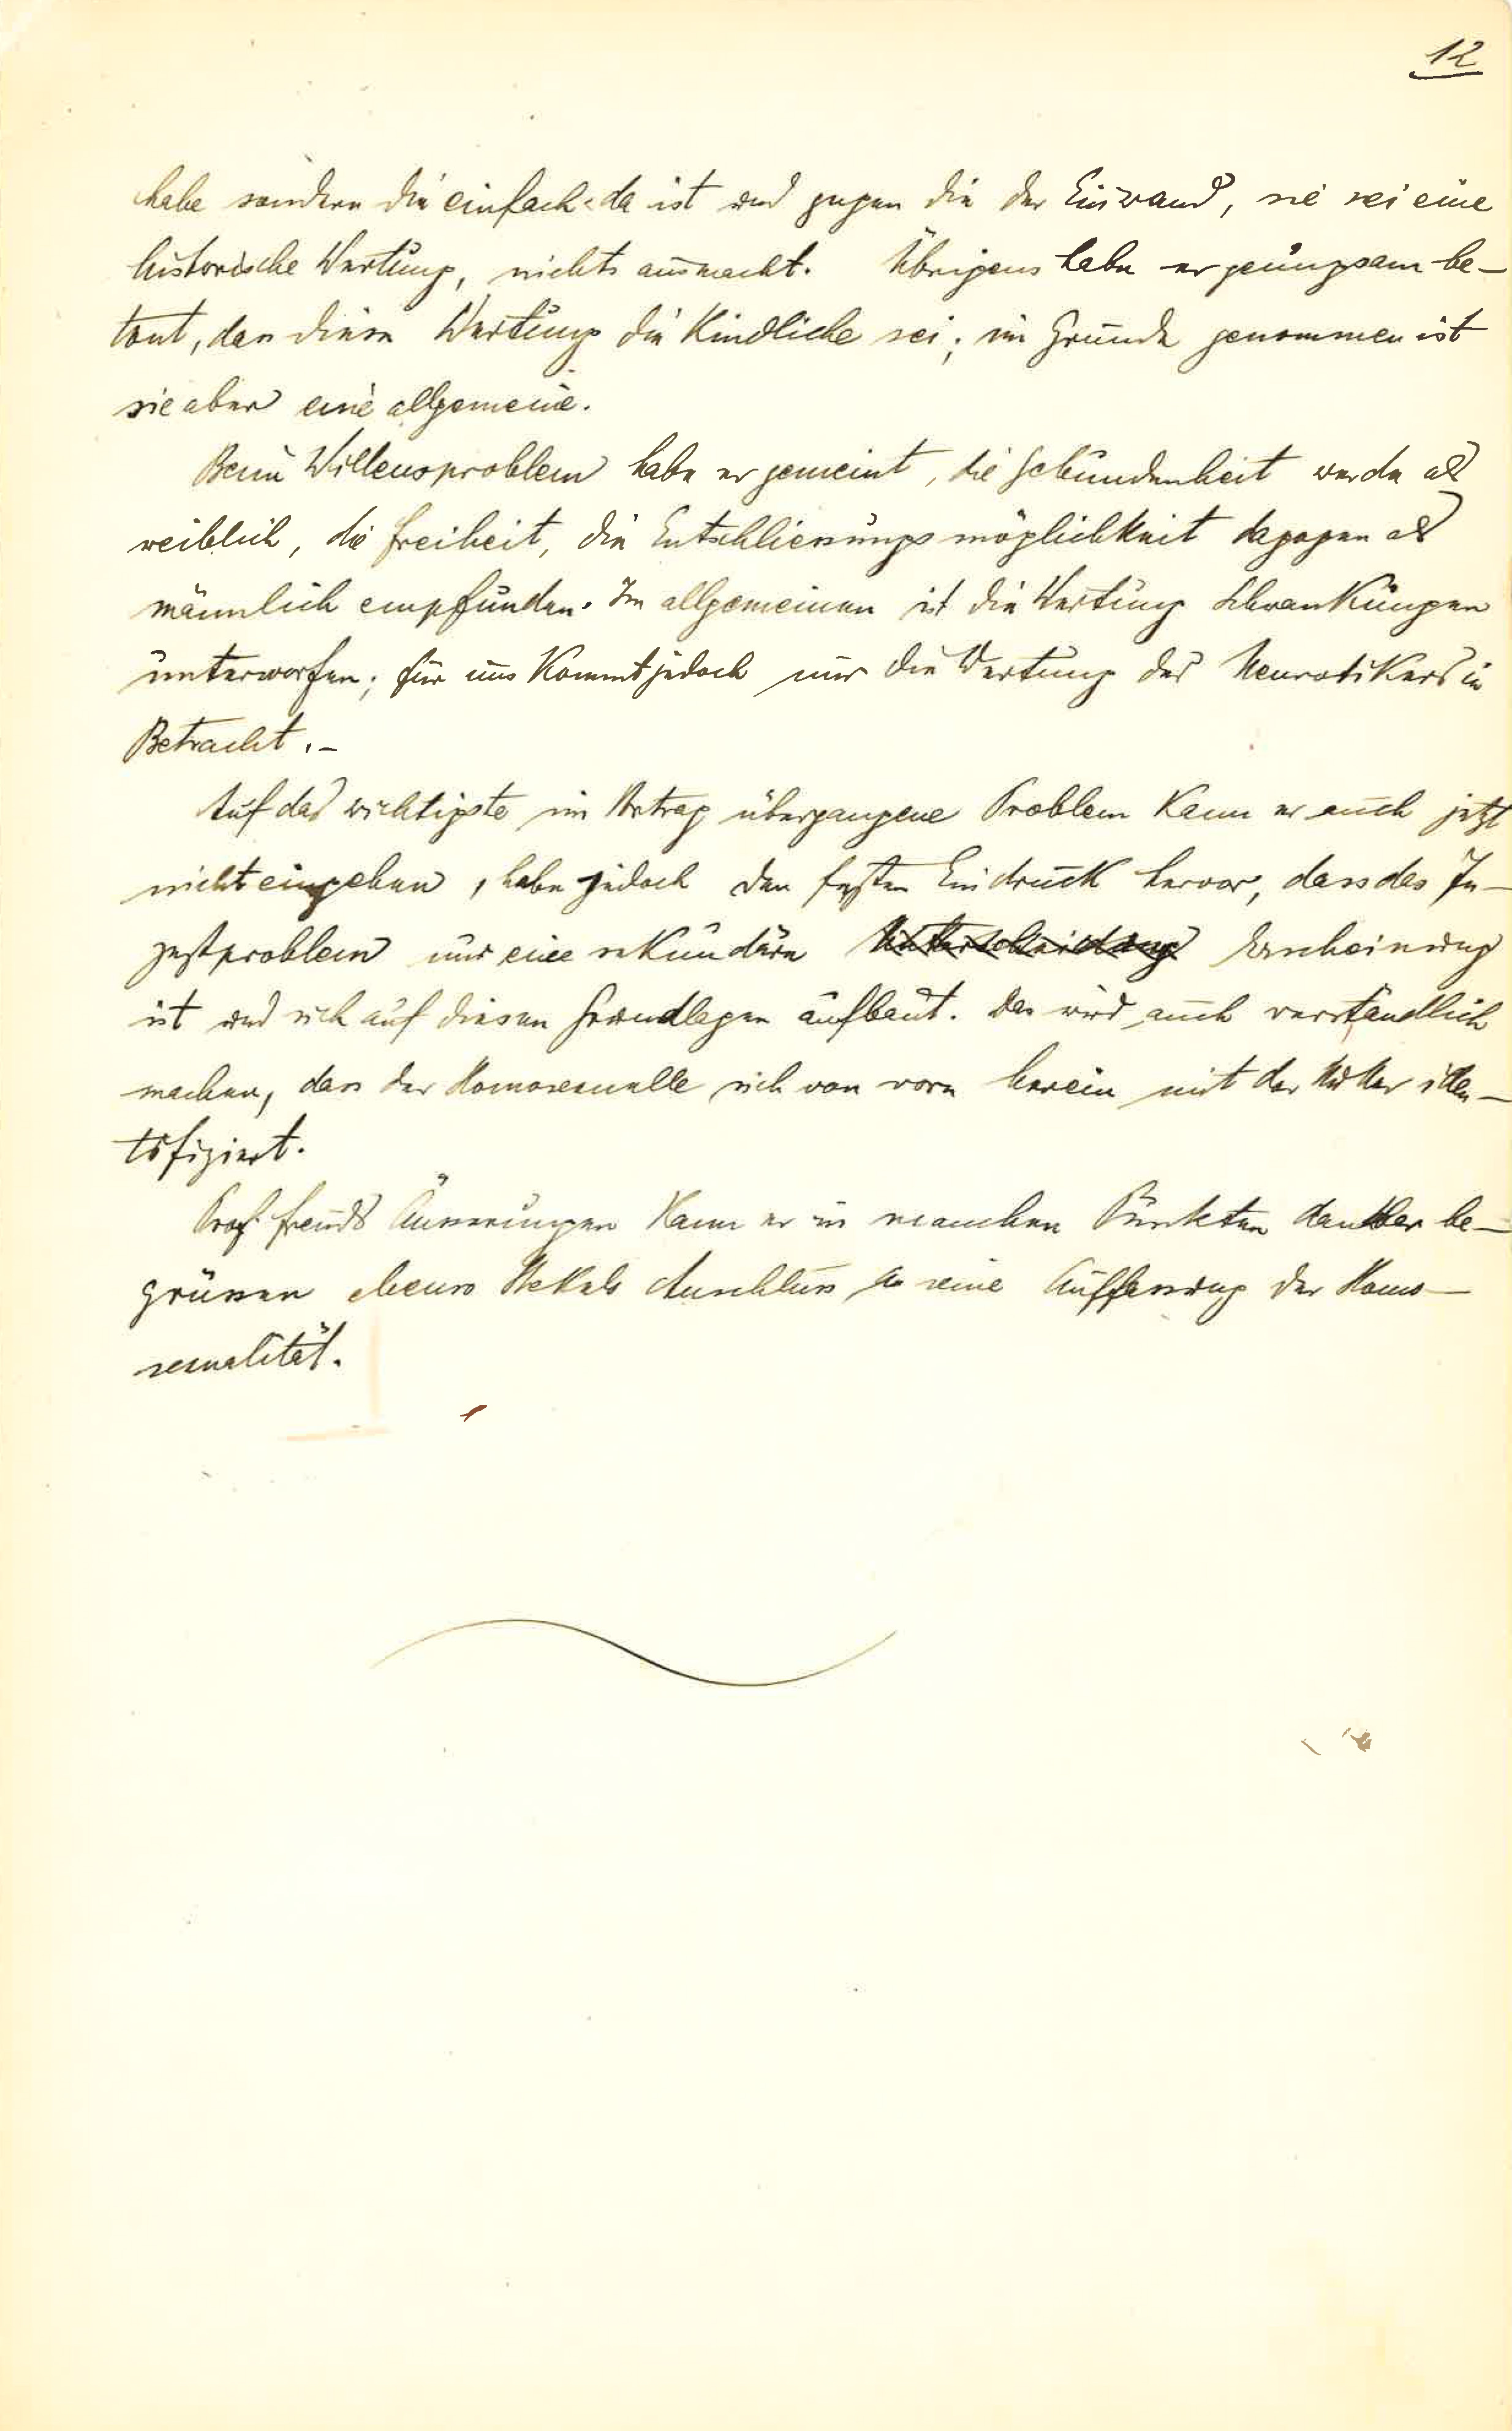 12
habe sondern die einfach da ist und gegen die der Einwand, sie sei eine
historische Wertung, nichts ausmacht. Übrigens habe er genugsam be-
tont, dass diese Wertung die Kindliche sei; im Grunde genommen ist
sie aber eine allgemeine.
Beim Willensproblem habe er gemeint, die Gebundenheit werde als
weiblich, die Freiheit, die Entschliessungsmöglichkeit dagegen als
männlich empfunden. Im allgemeinen ist die Wertung Schwankungen
unterworfen; für uns Kommt jedoch nur die Wertung des Neurotikers in
Betracht.-
Auf das wichtigste im Vortrag übergangene Problem Kann er auch jetzt
nicht eingehen, habe jedoch den festen Eindruck hervor, dass das In-
zestproblem nur eine sekundäre Unterscheidung Erscheinung
ist und sich auf diesen Grundlagen aufbaut. Das wird auch verständlich
machen, dass der Homosexuelle sich von vorn herein mit der Mutter iden-
tifiziert.
Prof. Freuds Äusserungen Kann er in manchen Punkten dankbar be-
grüssen ebenso Stekels Anschluss an seine Auffassung der Homo-
sexualität.